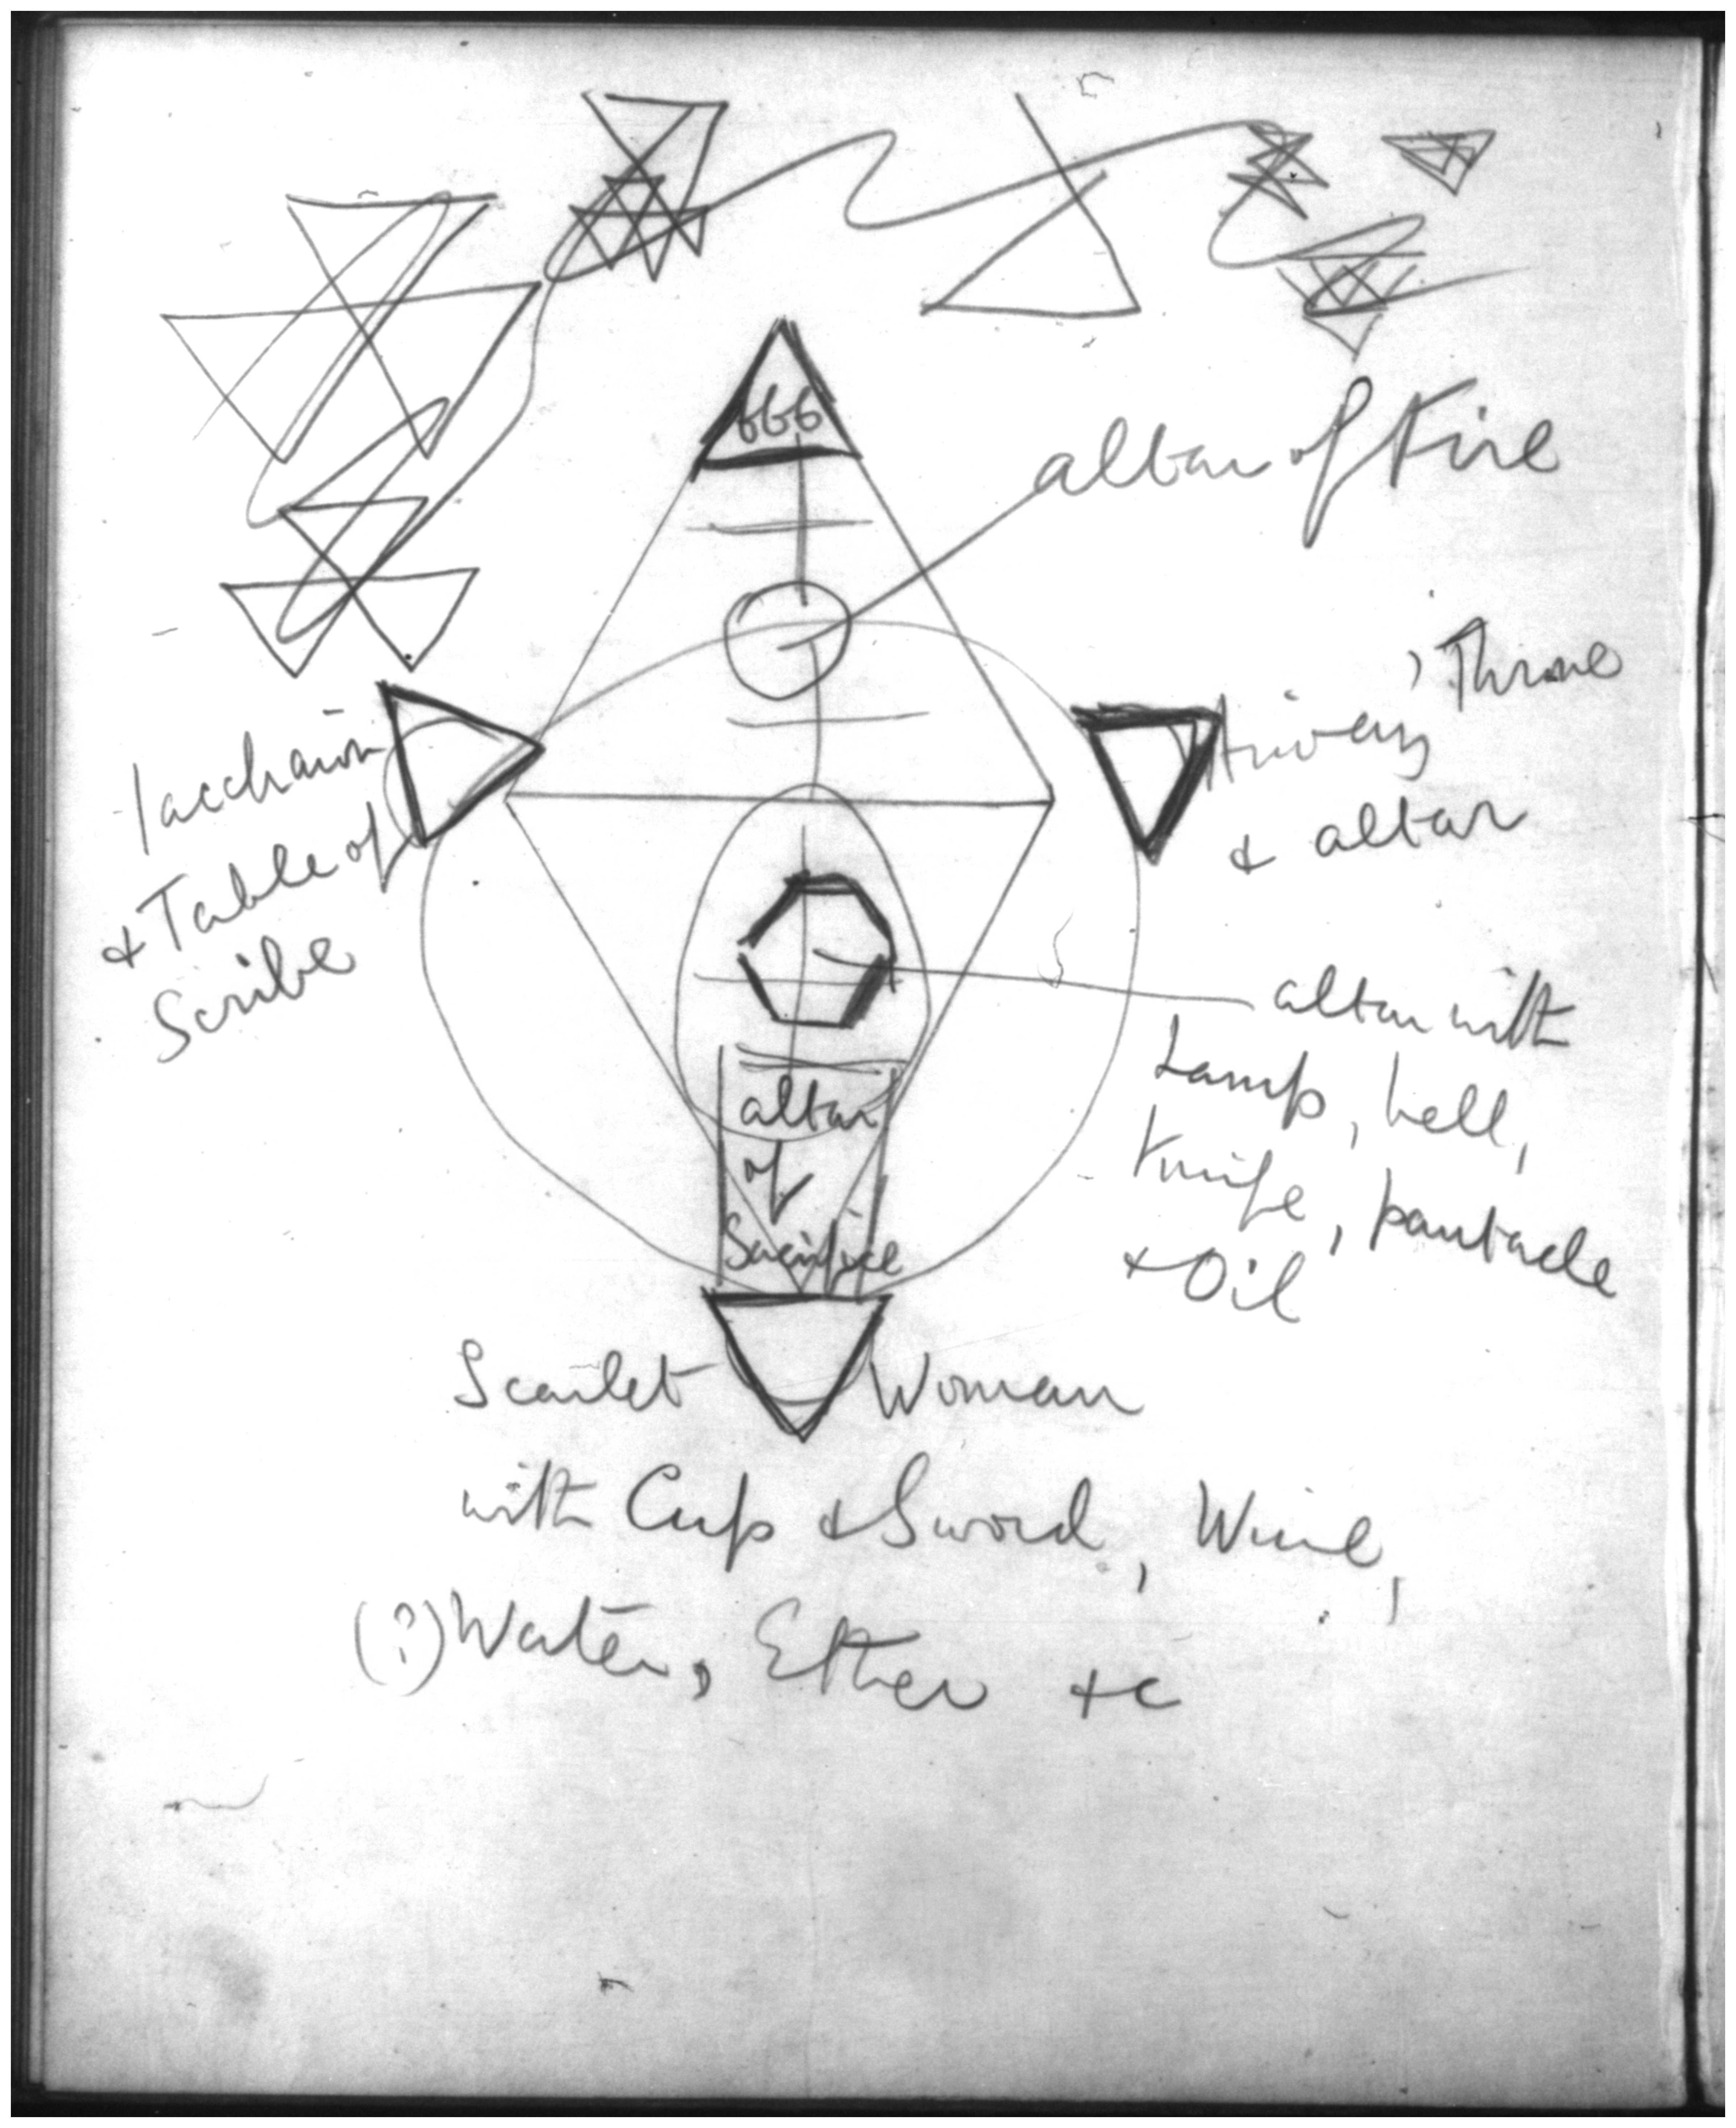 666
altar of Fire
Throne
& altar
& Table of
Scribe
altar with
Lamp, bell,
Knife, pantacle
& Oil
altar
of
Sacrifice
Scarlet Woman
with Cup & Sword, Wine,
(?) Water, Ether &c